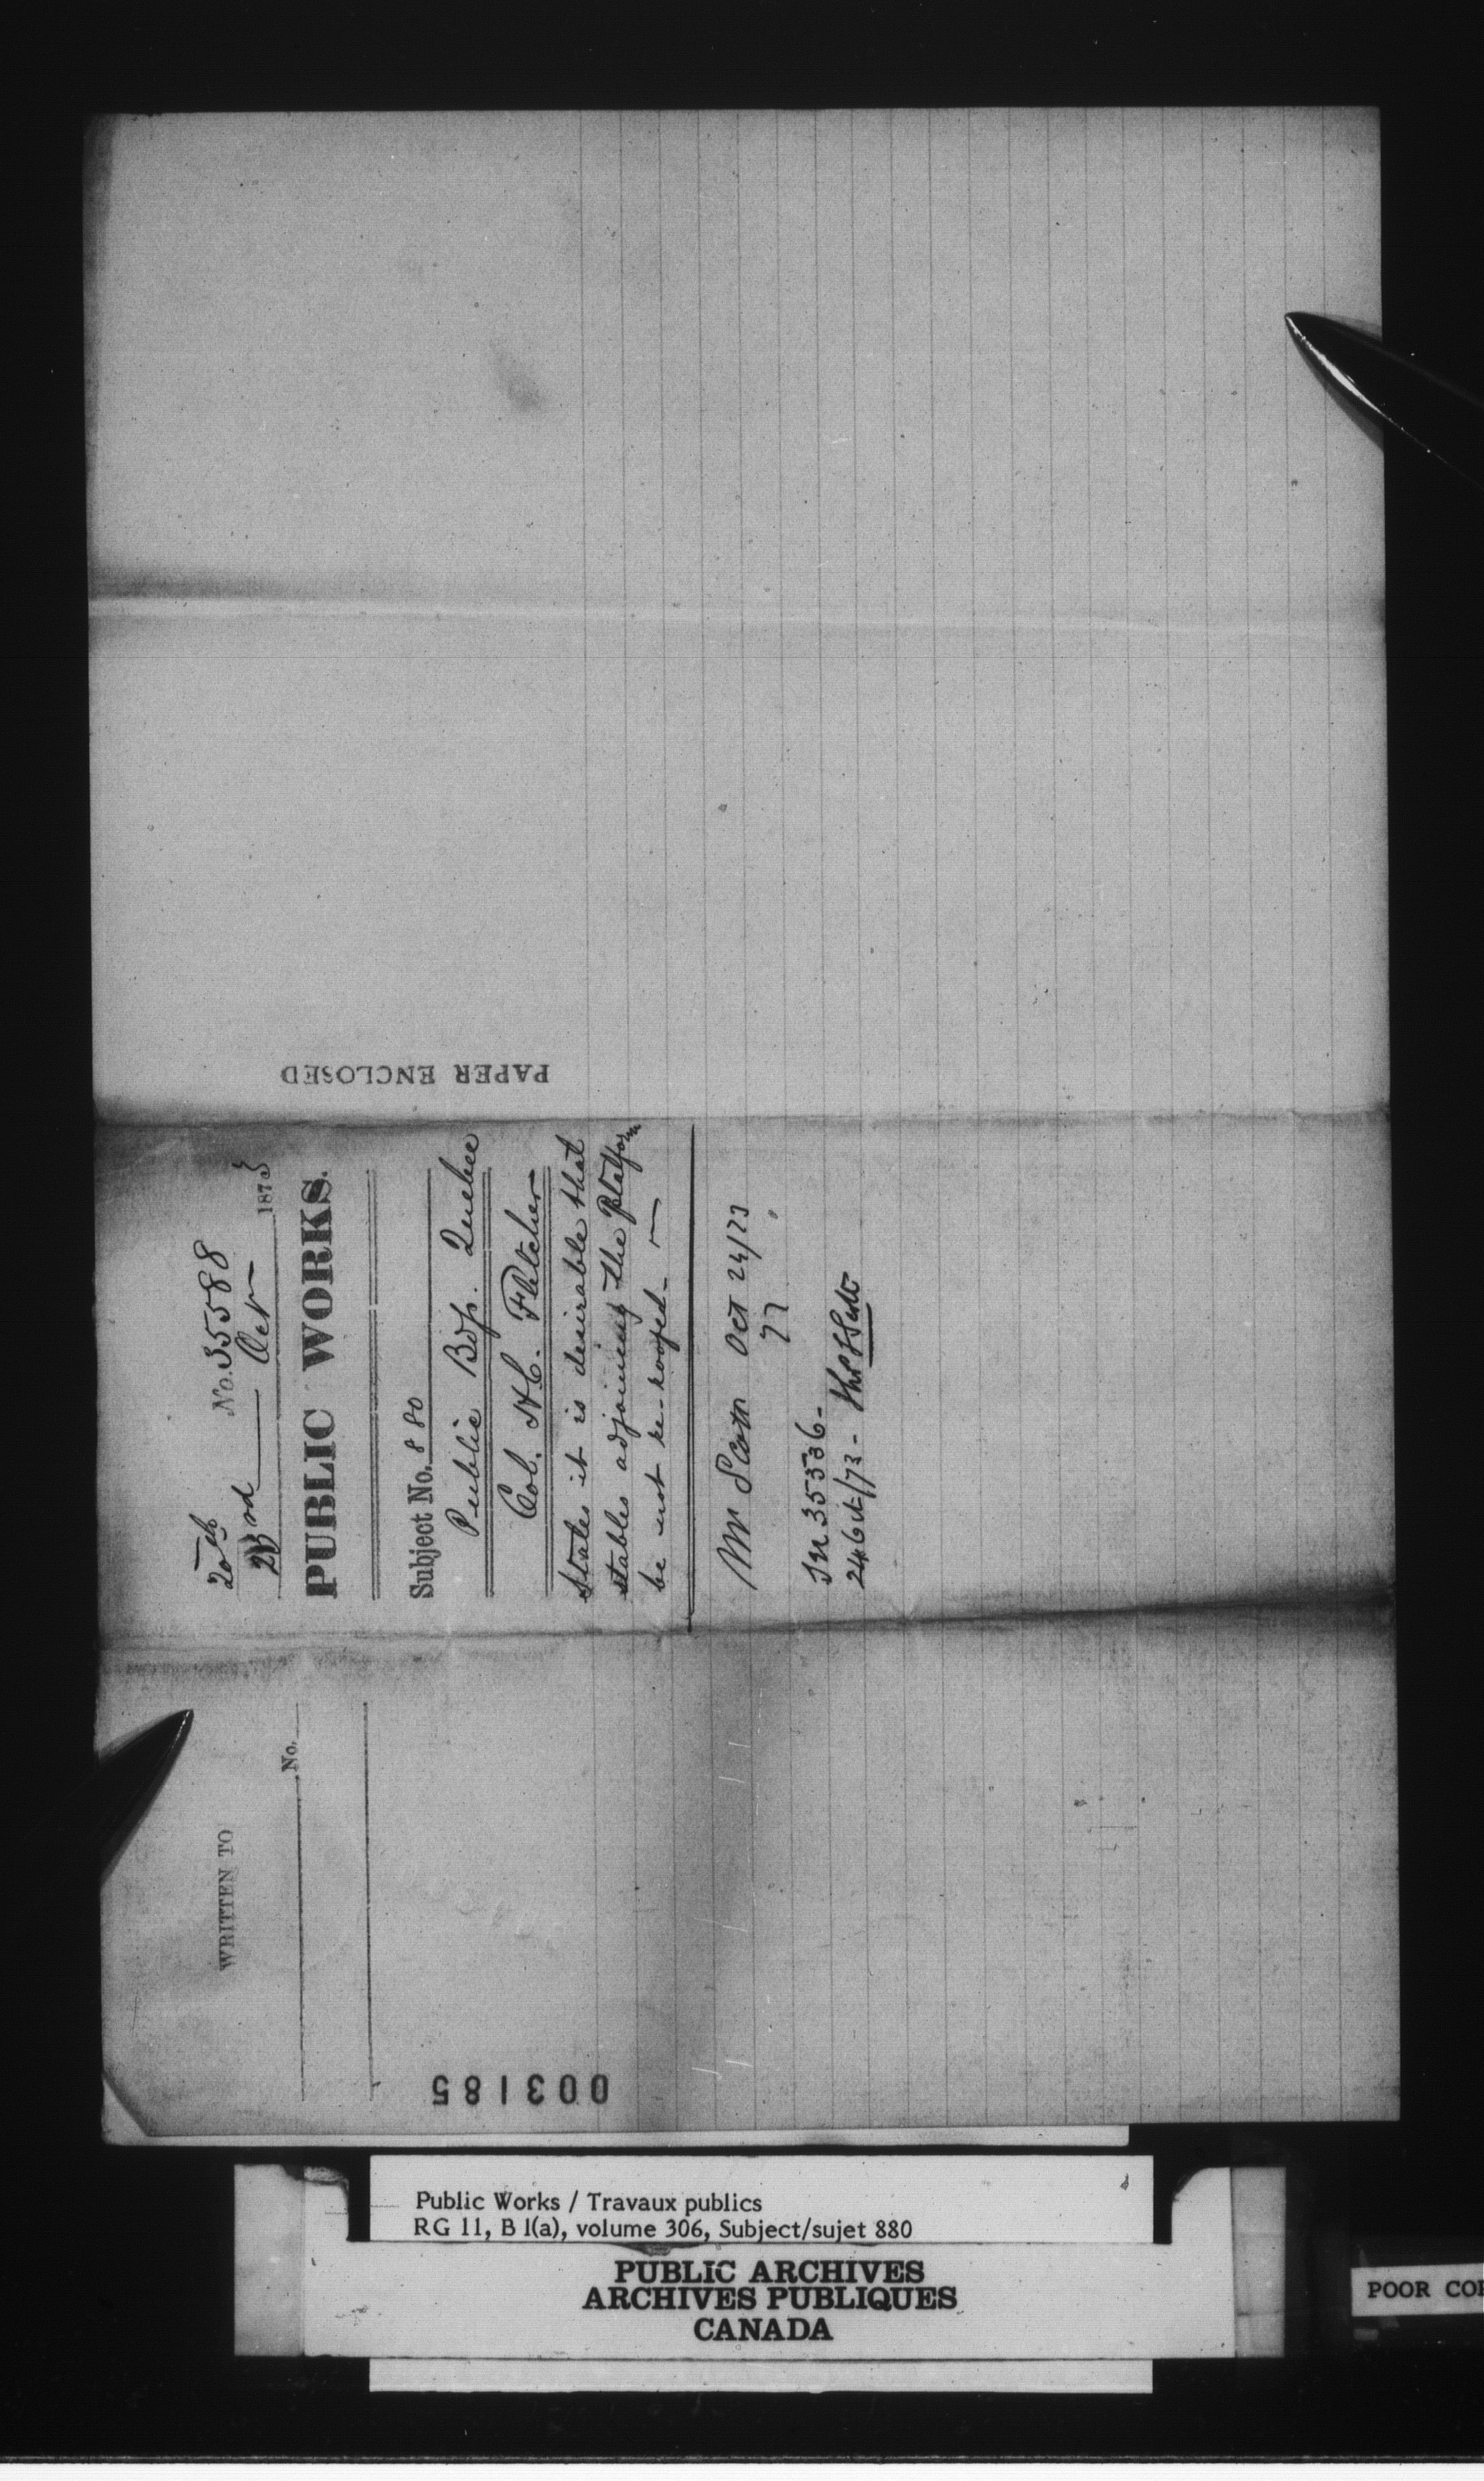 20th
No. 35588
23rd Octr 1873
PUBLIC WORKS.
Subject No. 880
Public Bdgs. Quebec
Col. H.C. Fletcher
States it is desirable that
stables adjoining the Platform
be not re-roofed -
Mr Scott Oct 24/73
35536 -
24 Oct/73 -
PAPER ENCLOSED
WRITTEN TO
No.
003185
Public Works / Travaux publics
RG 11, B 1(a), volume 306, Subject/sujet 880
PUBLIC ARCHIVES
ARCHIVES PUBLIQUES
CANADA
POOR